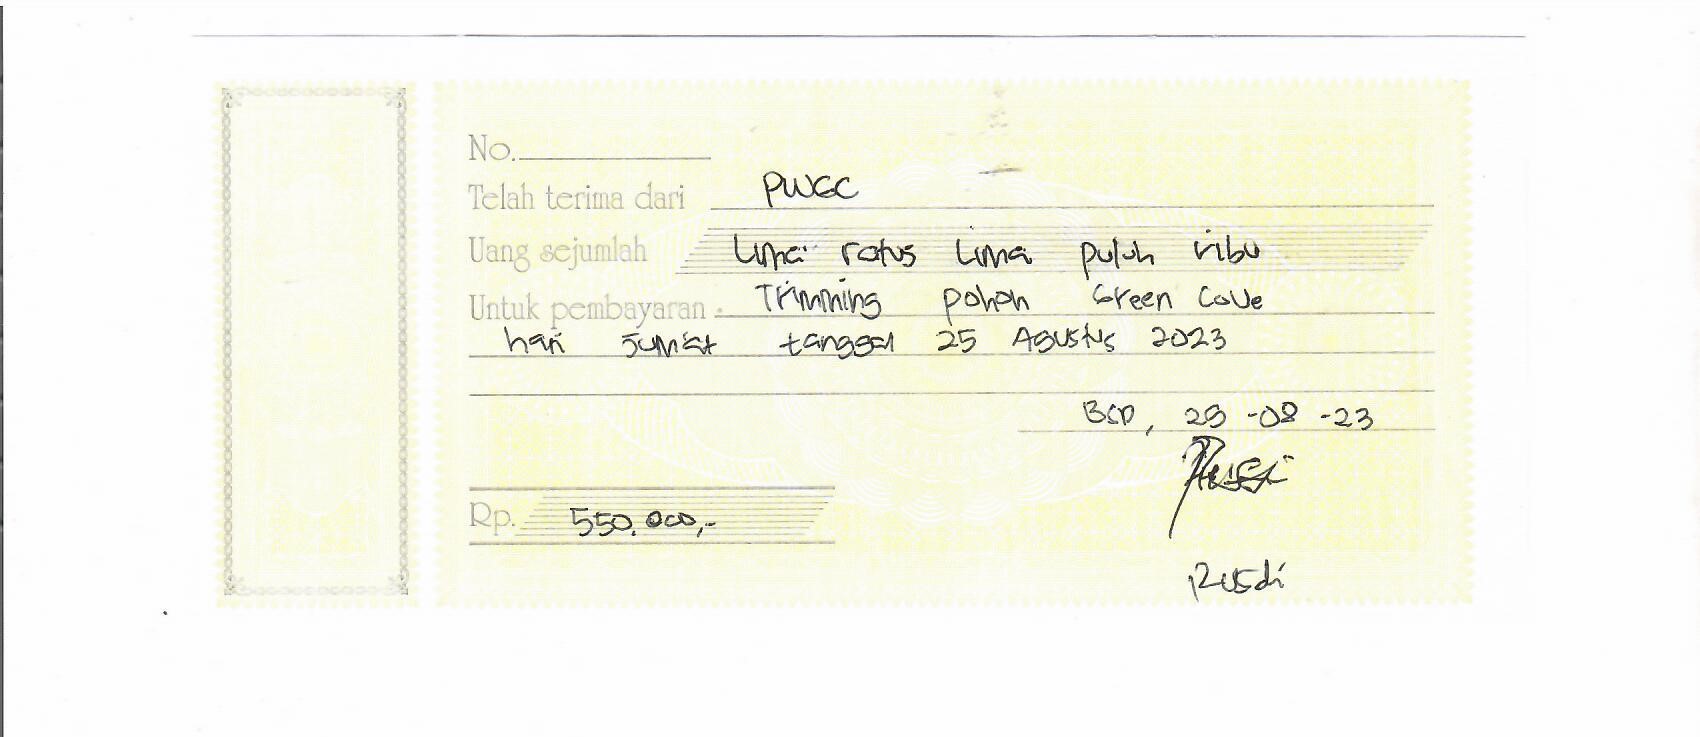 No.
Telah terima dari PWGC
Uang sejumlah Lima ratus Lima puluh ribu
Untuk pembayaran Trimming pohon Green Cove
hari Jum'at tanggal 25 Agustus 2023
BSD, 25 -08 -23
Rp. 550.000,-
Rusdi